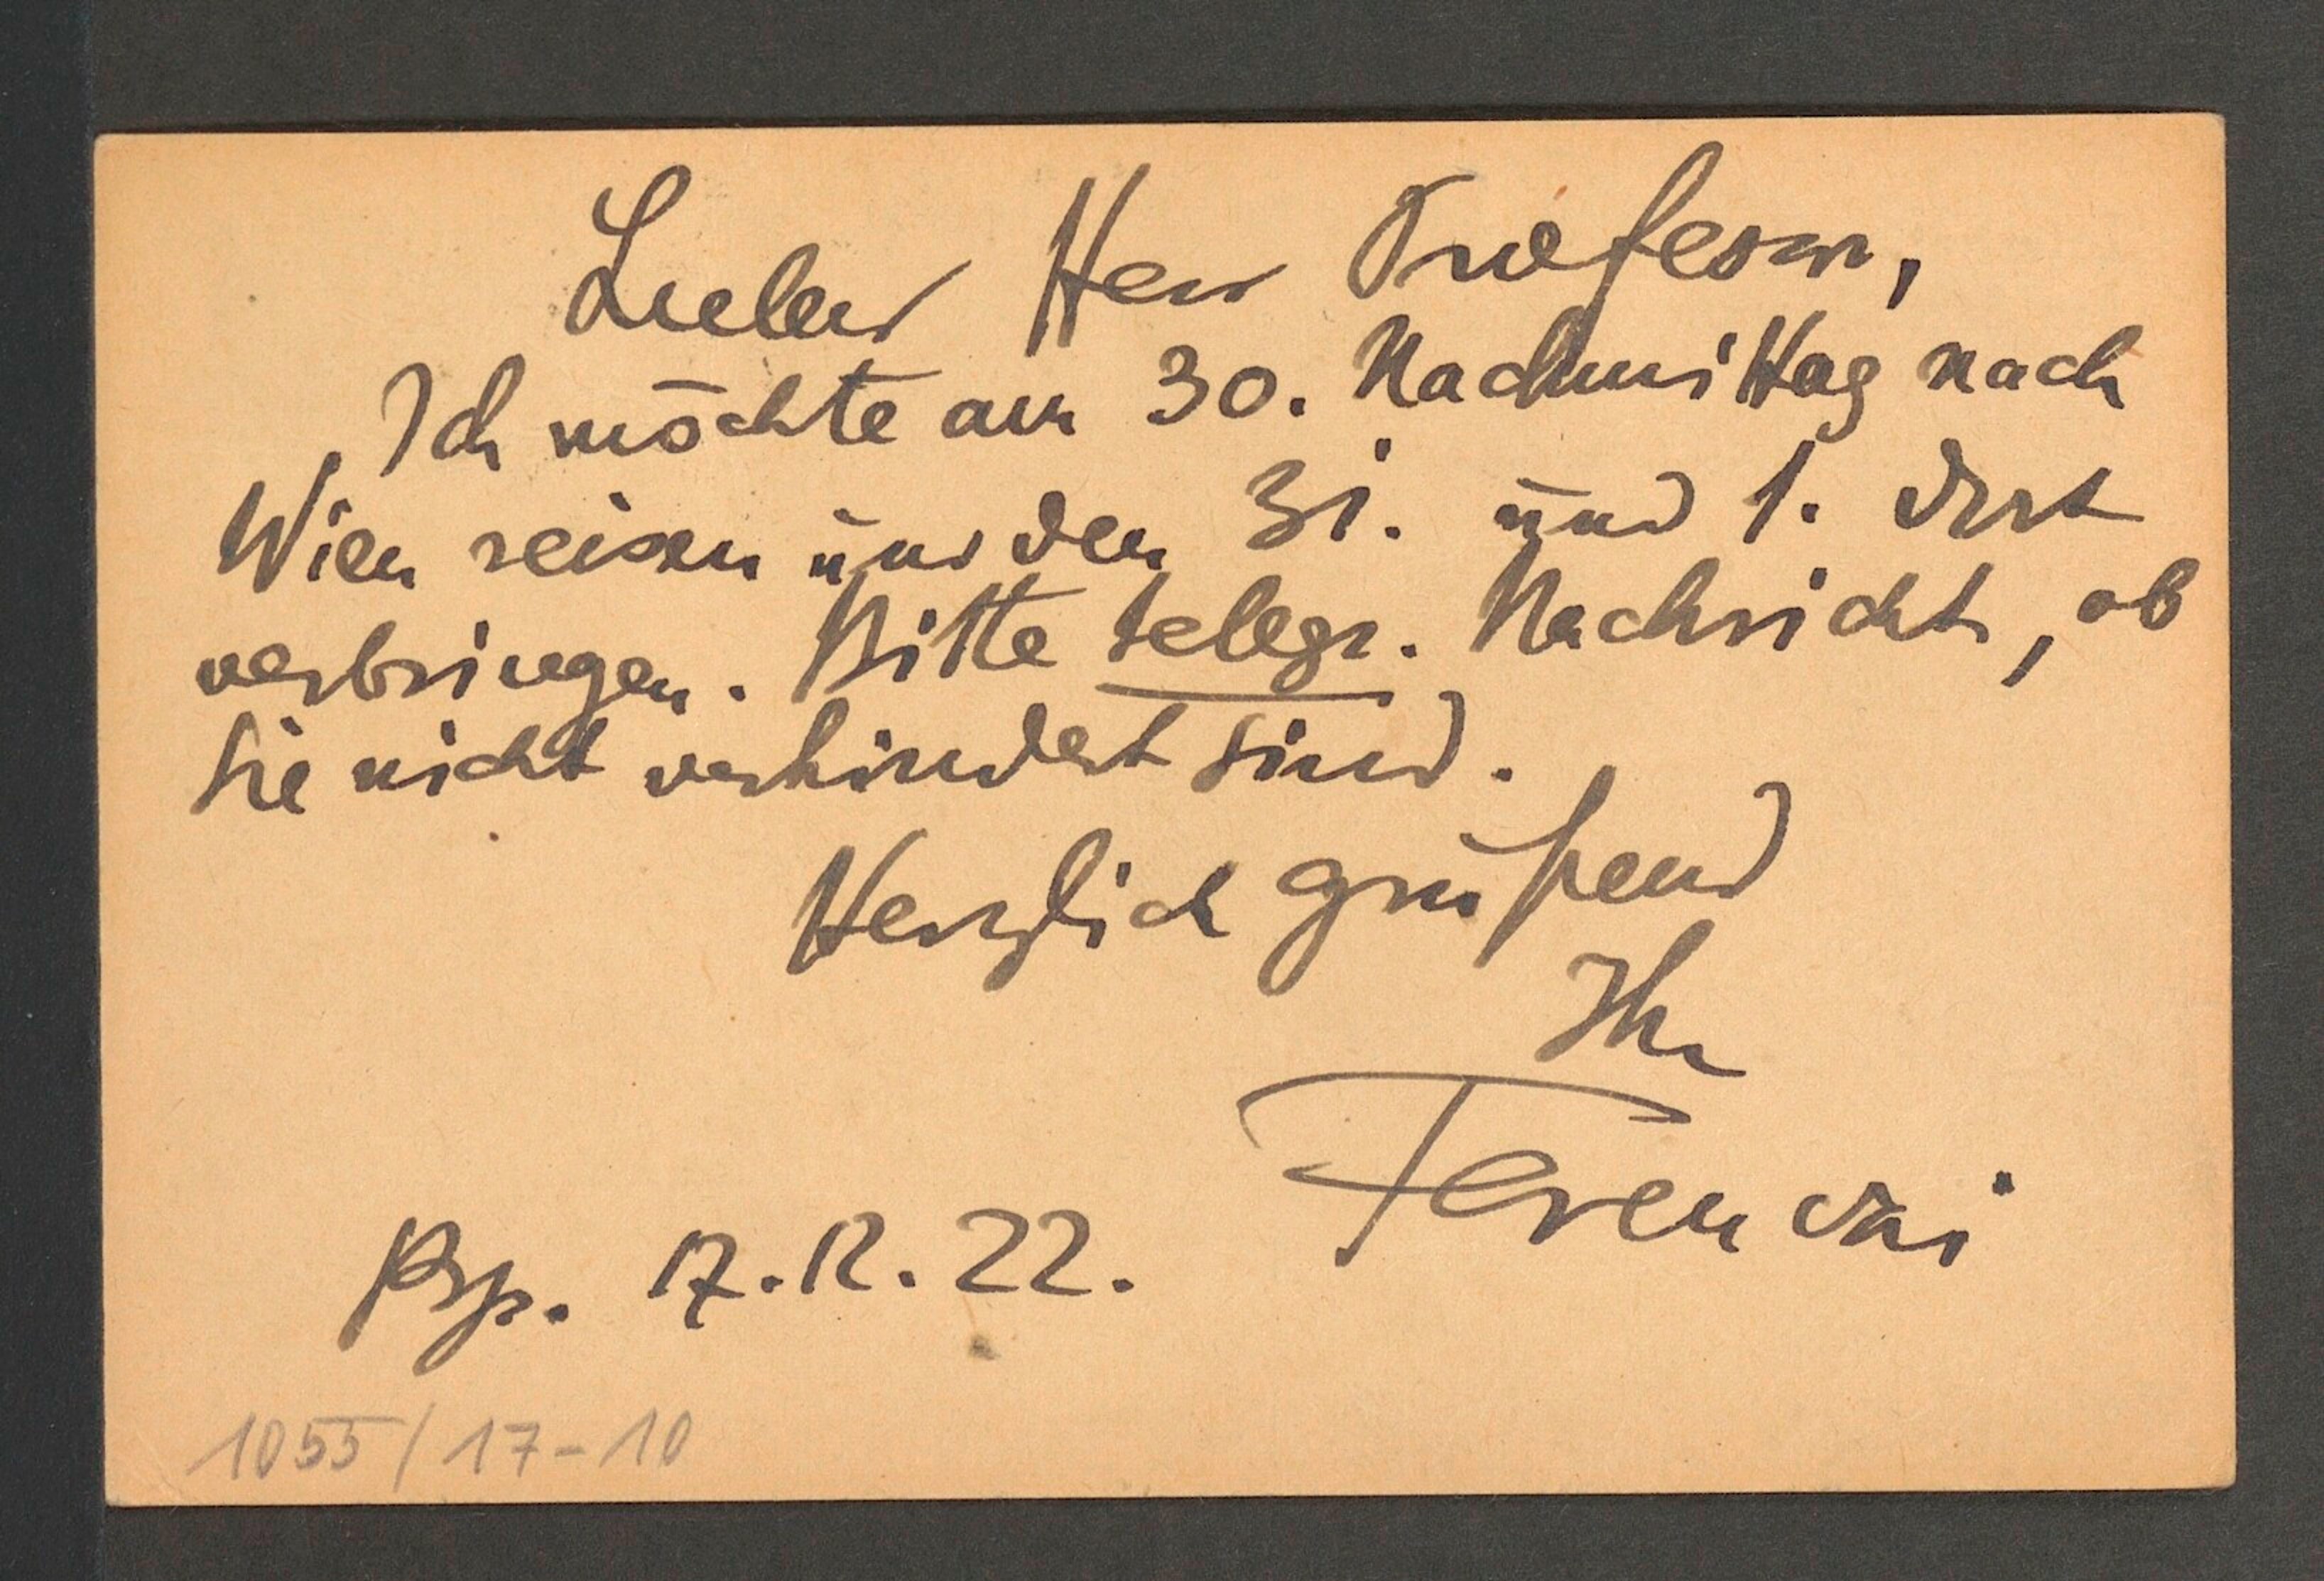 Lieber Herr Professor,
Ich möchte am 30. Nachmittag nach
Wien reisen und den 31. und 1. dort
verbringen. Bitte telegr. Nachricht, ob
Sie nicht verhindert sind.
Herzlich grüßend
Ihr
Ferenczi
Bp. 17.12.22.
1055/17-10